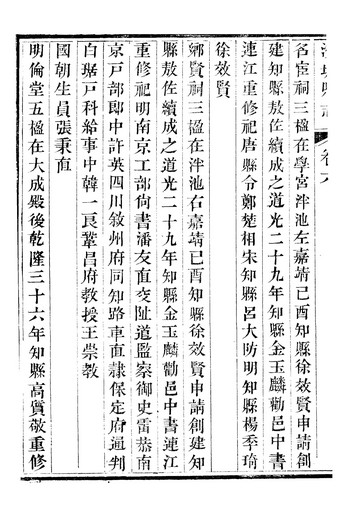 名宦祠三楹在學宮泮池左嘉靖己酉知縣徐效賢申請創
建知縣敖佐續成之道光二十九年知縣金玉麟勸邑中書
連江重修祀唐縣令鄭楚相宋知縣呂大防明知縣楊季琦
徐效賢
鄉賢祠三楹在泮池右嘉靖己酉知縣徐效賢申請創建知
縣敖佐續成之道光二十九年知縣金玉麟勸邑中書連江
重修祀明南京工部尚書潘友直交阯道監察御史雷恭南
京戸部郎中許英四川敘州府同知路車直隸保定府通判
白琚戸科給事中韓一良鞏昌府教授王崇教
國朝生員張秉直
明倫堂五楹在大成殿後乾隆三十六年知縣高質敬重修